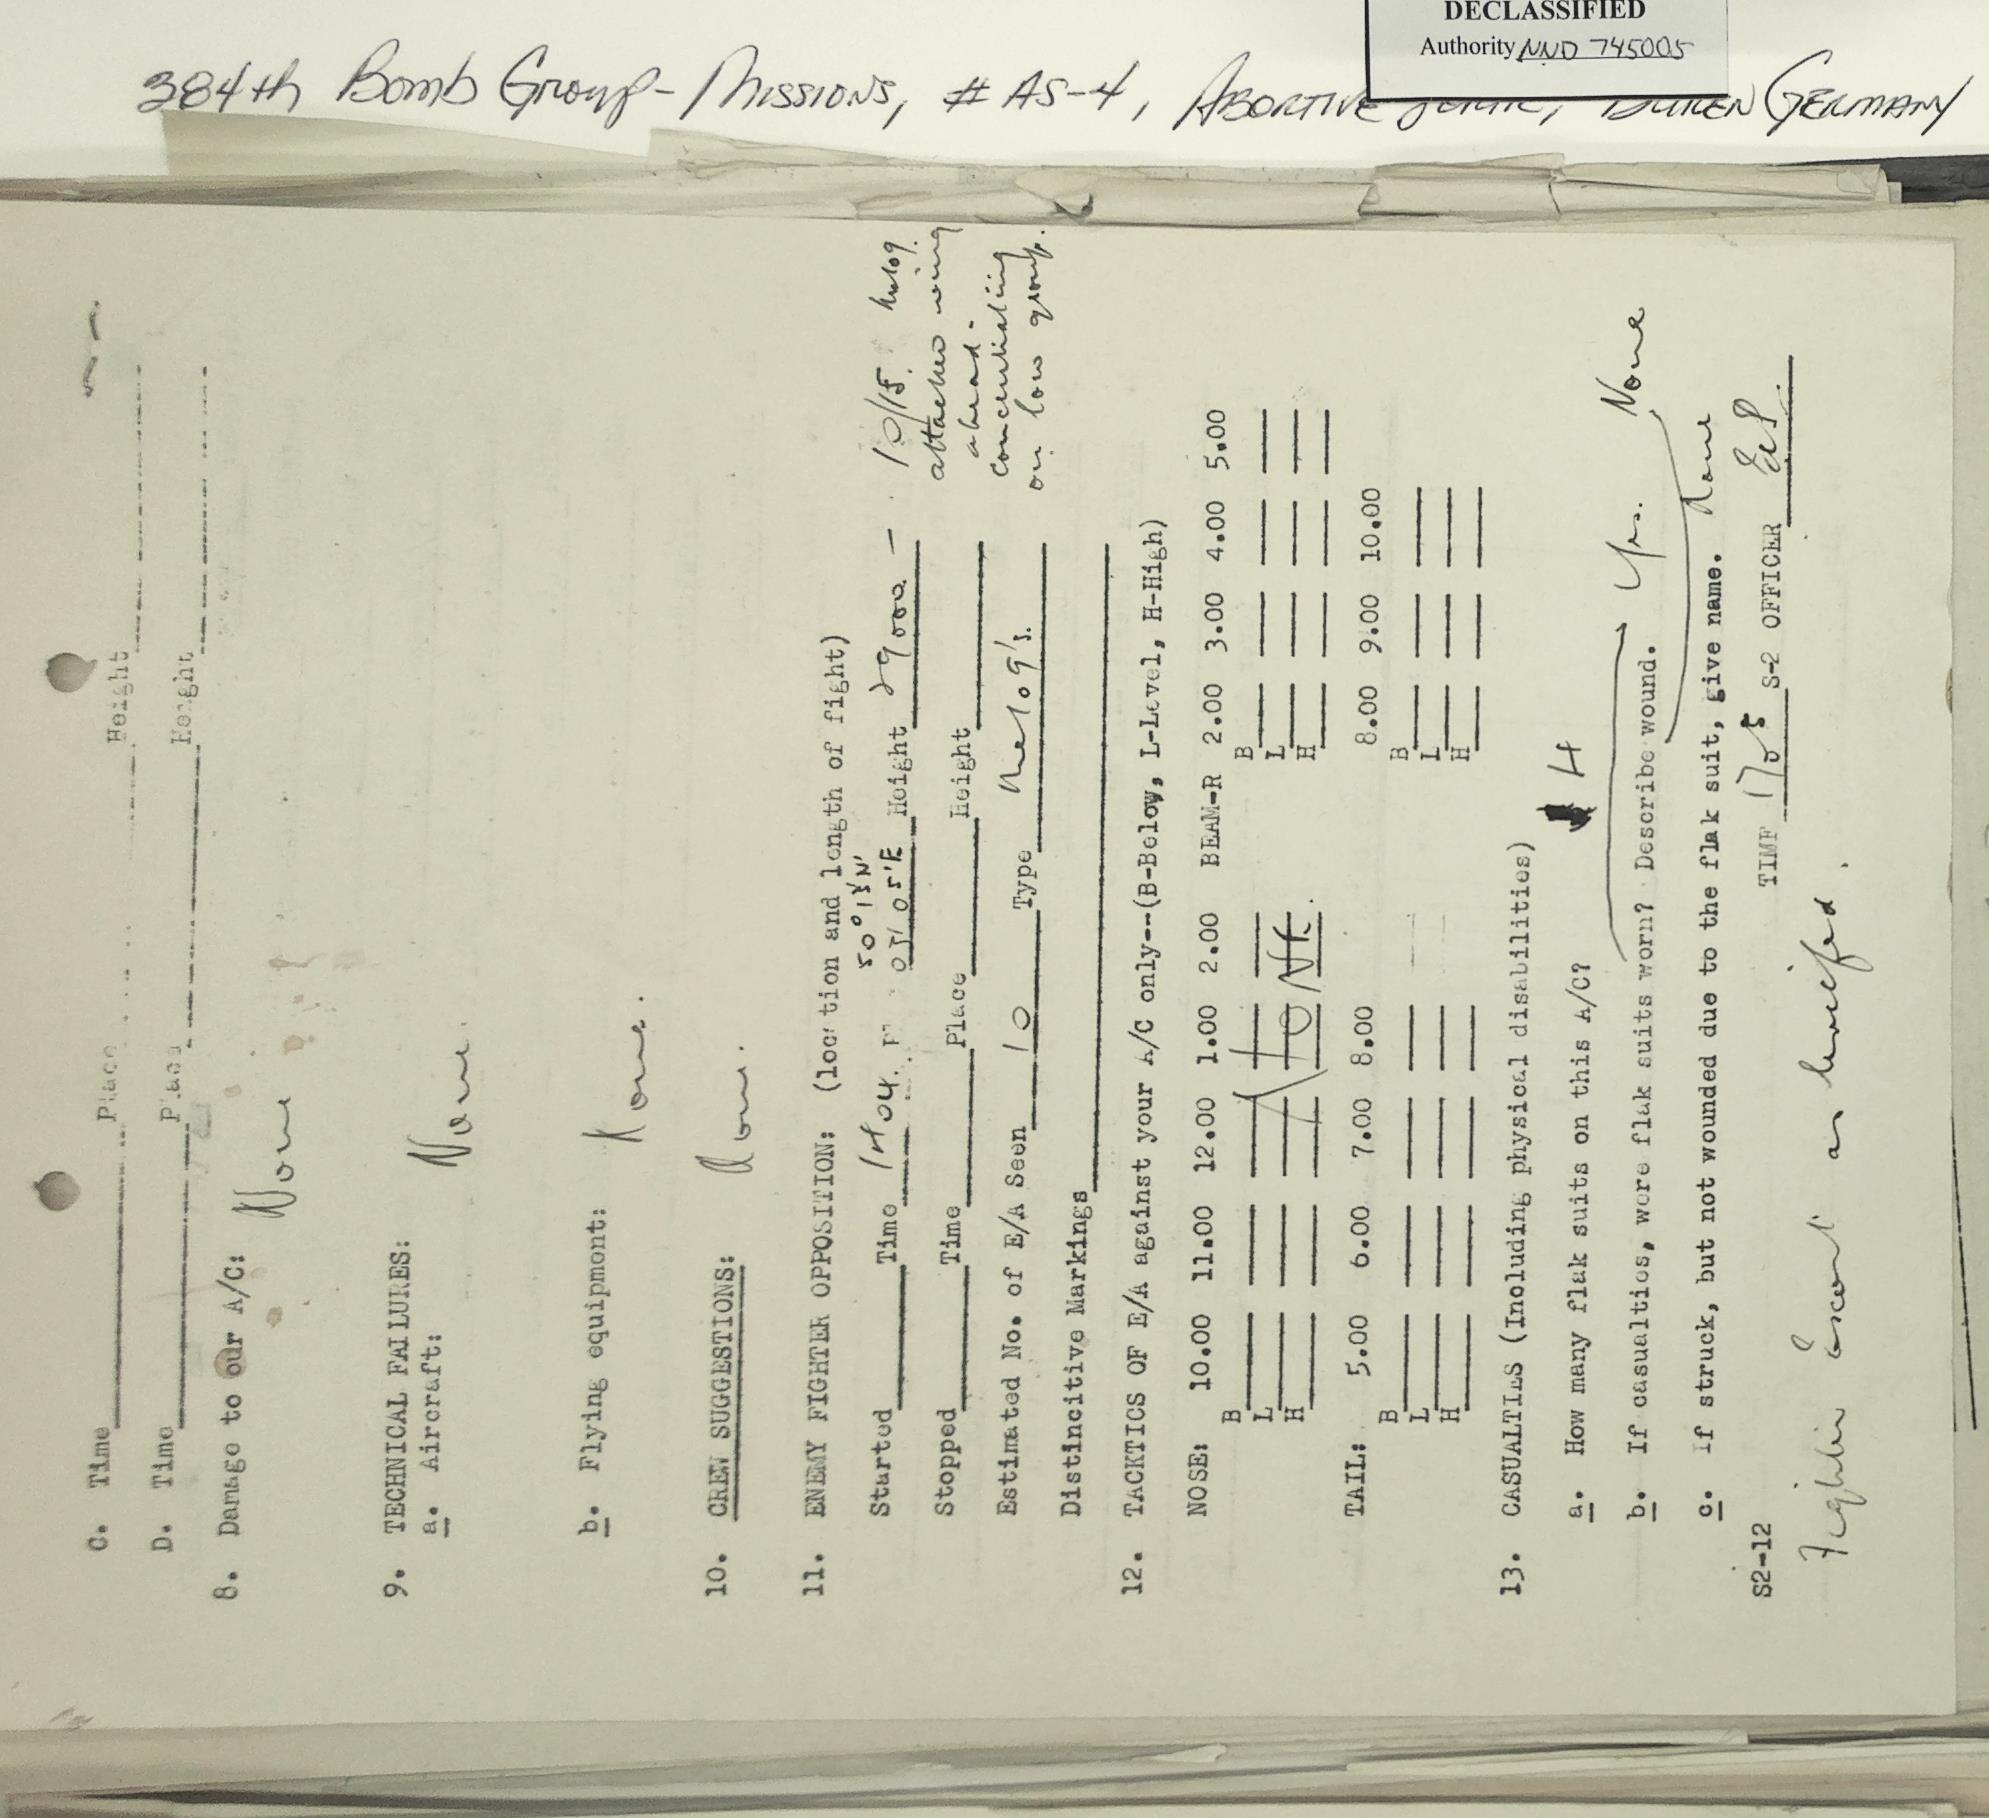 DECLASSIFIED
Authority NND 745005
384th Bomb Group - Missions, # AS-4, Abortive Germany
C. Time Place Height
D. Time Place Height
8. Damage to our A/C: None
9. TECHNICAL FAILURES:
a. Aircraft: None.
b. Flying equipmont: None.
10. CREW SUGGESTIONS: None.
11. ENEMY FIGHTER OPPOSITION: (location and length of fight)
50°13'N'
Started Time 1404. 05'E Height 29000 - 10/15 Me109.
attacked wing
ahead -
concentrating
on low group.
Stopped Time Place Height
Estimated No. of E/A Seen 10 Type Me109's.
Distincitive Markings
12. TACKTICS OF E/A against your A/C only--(B-Below, L-Level, H-High)
NOSE: 10.00 11.00 12.00 1.00 2.00 BEAM-R 2.00 3.00 4.00 5.00
B B
L L
H H
TAIL: 5.00 6.00 7.00 8.00 8.00 9.00 10.00
B B
L L
H H
13. CASUALTIES (Including physical disabilities)
a. How many flak suits on this A/C? 4
b. If casualtios, wore flak suits worn? Describe wound. Yes. None
c. If struck, but not wounded due to the flak suit, give name. None
S2-12 TIME 1705 S-2 OFFICER
Fighter Escort as briefed.